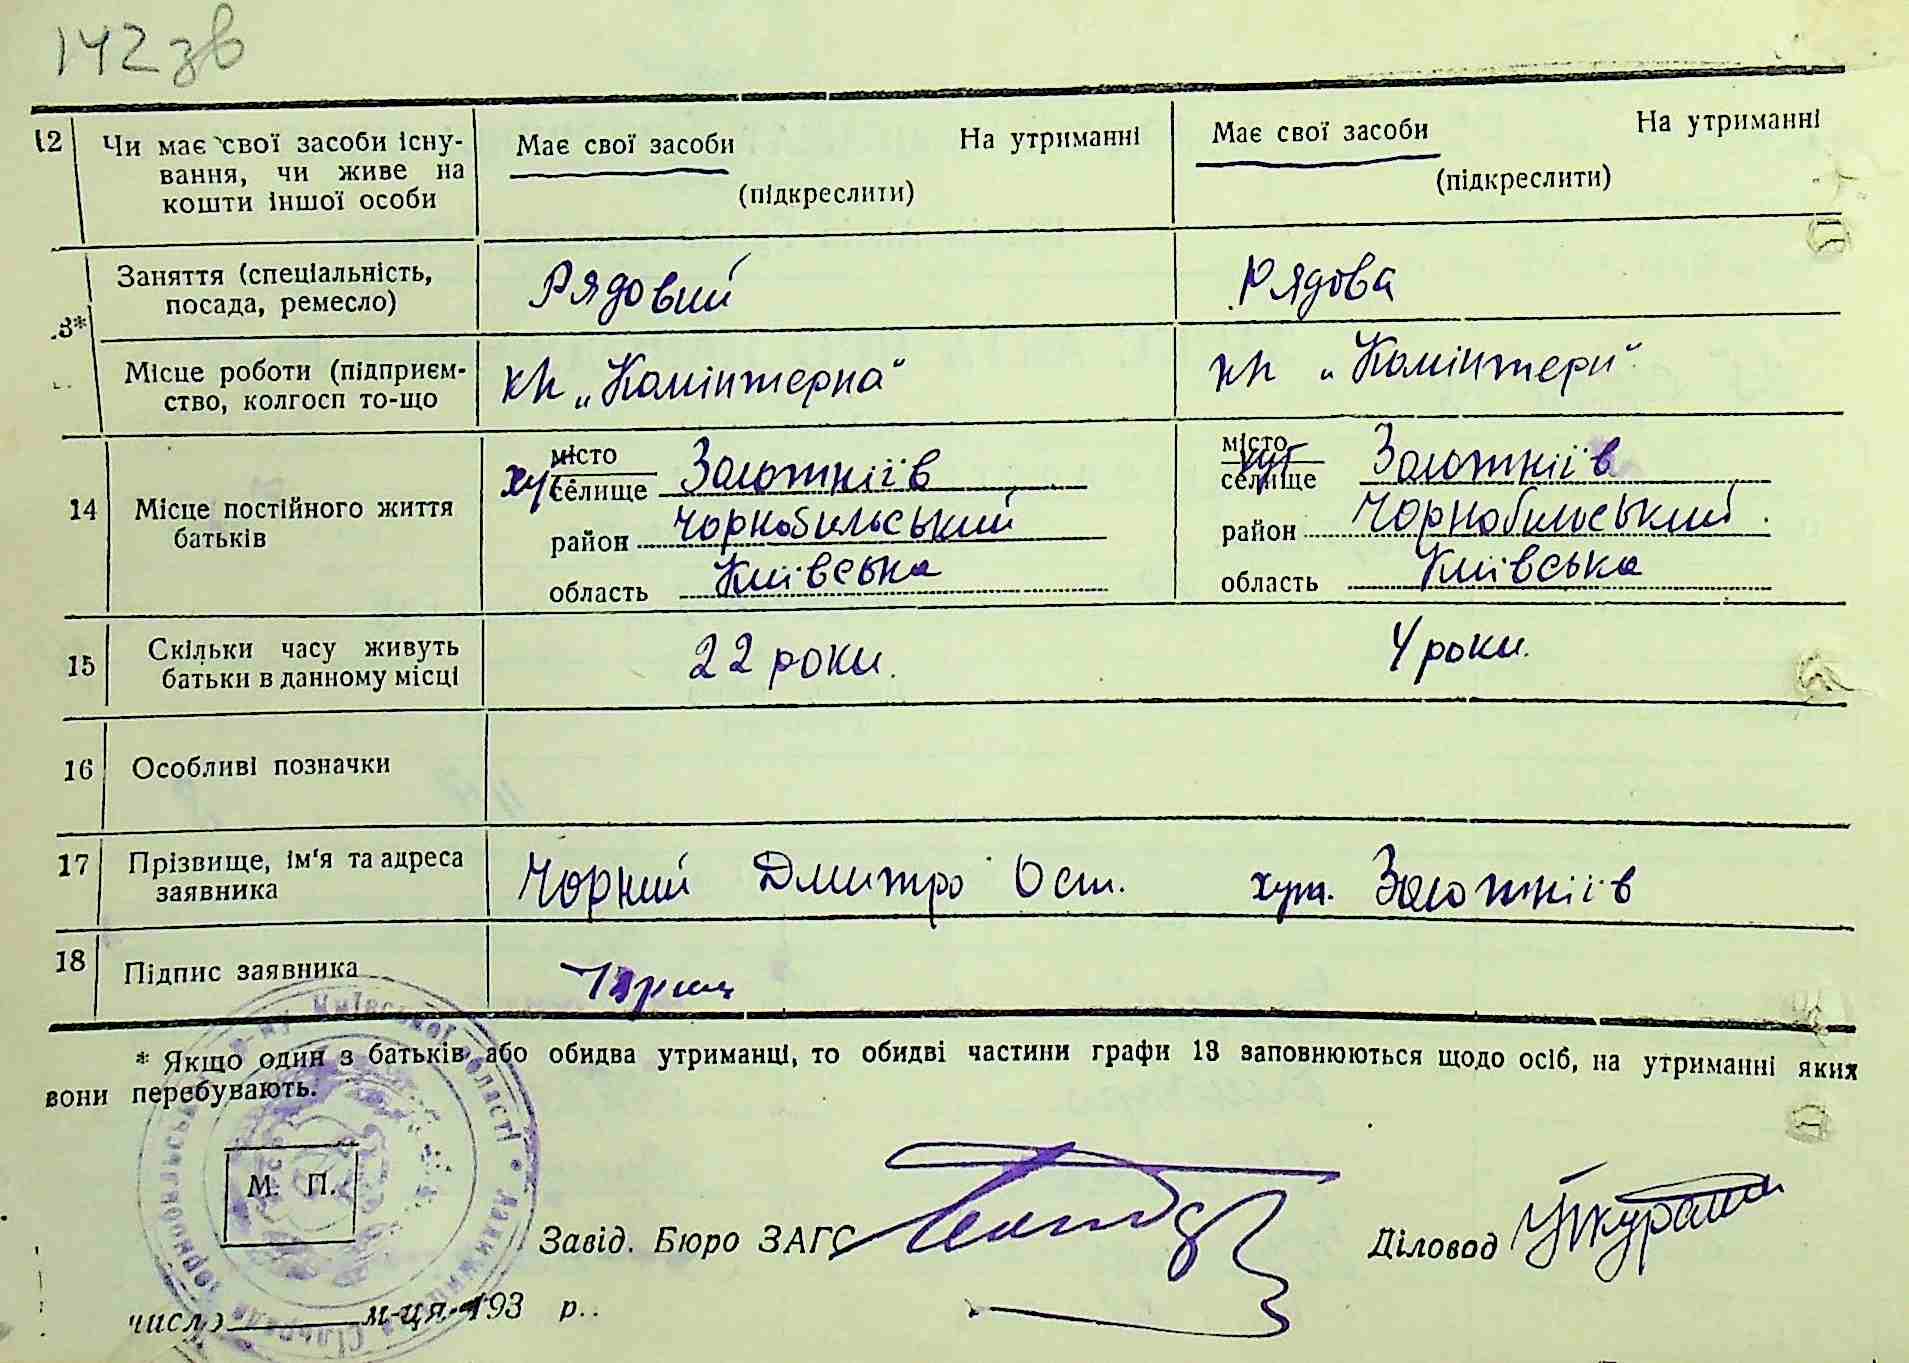 142 зв
12 Чи має свої засоби існу- Має свої засоби На утриманні Має свої засоби На утриманні
вання, чи живе на (підкреслити) (підкреслити)
кошти іншої особи
Заняття (спеціальність, Рядовий Рядова
посада, ремесло)
3*
Місце роботи (підприєм- кп „Комінтерна" кп „Комінтерн"
ство, колгосп то-що
14 Місце постійного життя батьків
місто місто
хут селище Золотніїв хут селище Золотніїв
район Чорнобильський район Чорнобильський
область Київська область Київська
15 Скільки часу живуть 22 роки. 4 роки.
батьки в данному місці
16 Особливі позначки
17 Прізвище, ім'я та адреса Чорний Дмитро Ост. хут. Золотніїв
заявника
18 Підпис заявника
* Якщо один з батьків або обидва утриманці, то обидві частини графи 13 заповнюються щодо осіб, на утриманні яких
вони перебувають.
М. П.
Завід. Бюро ЗАГС Діловод
число м-ця 193 р.